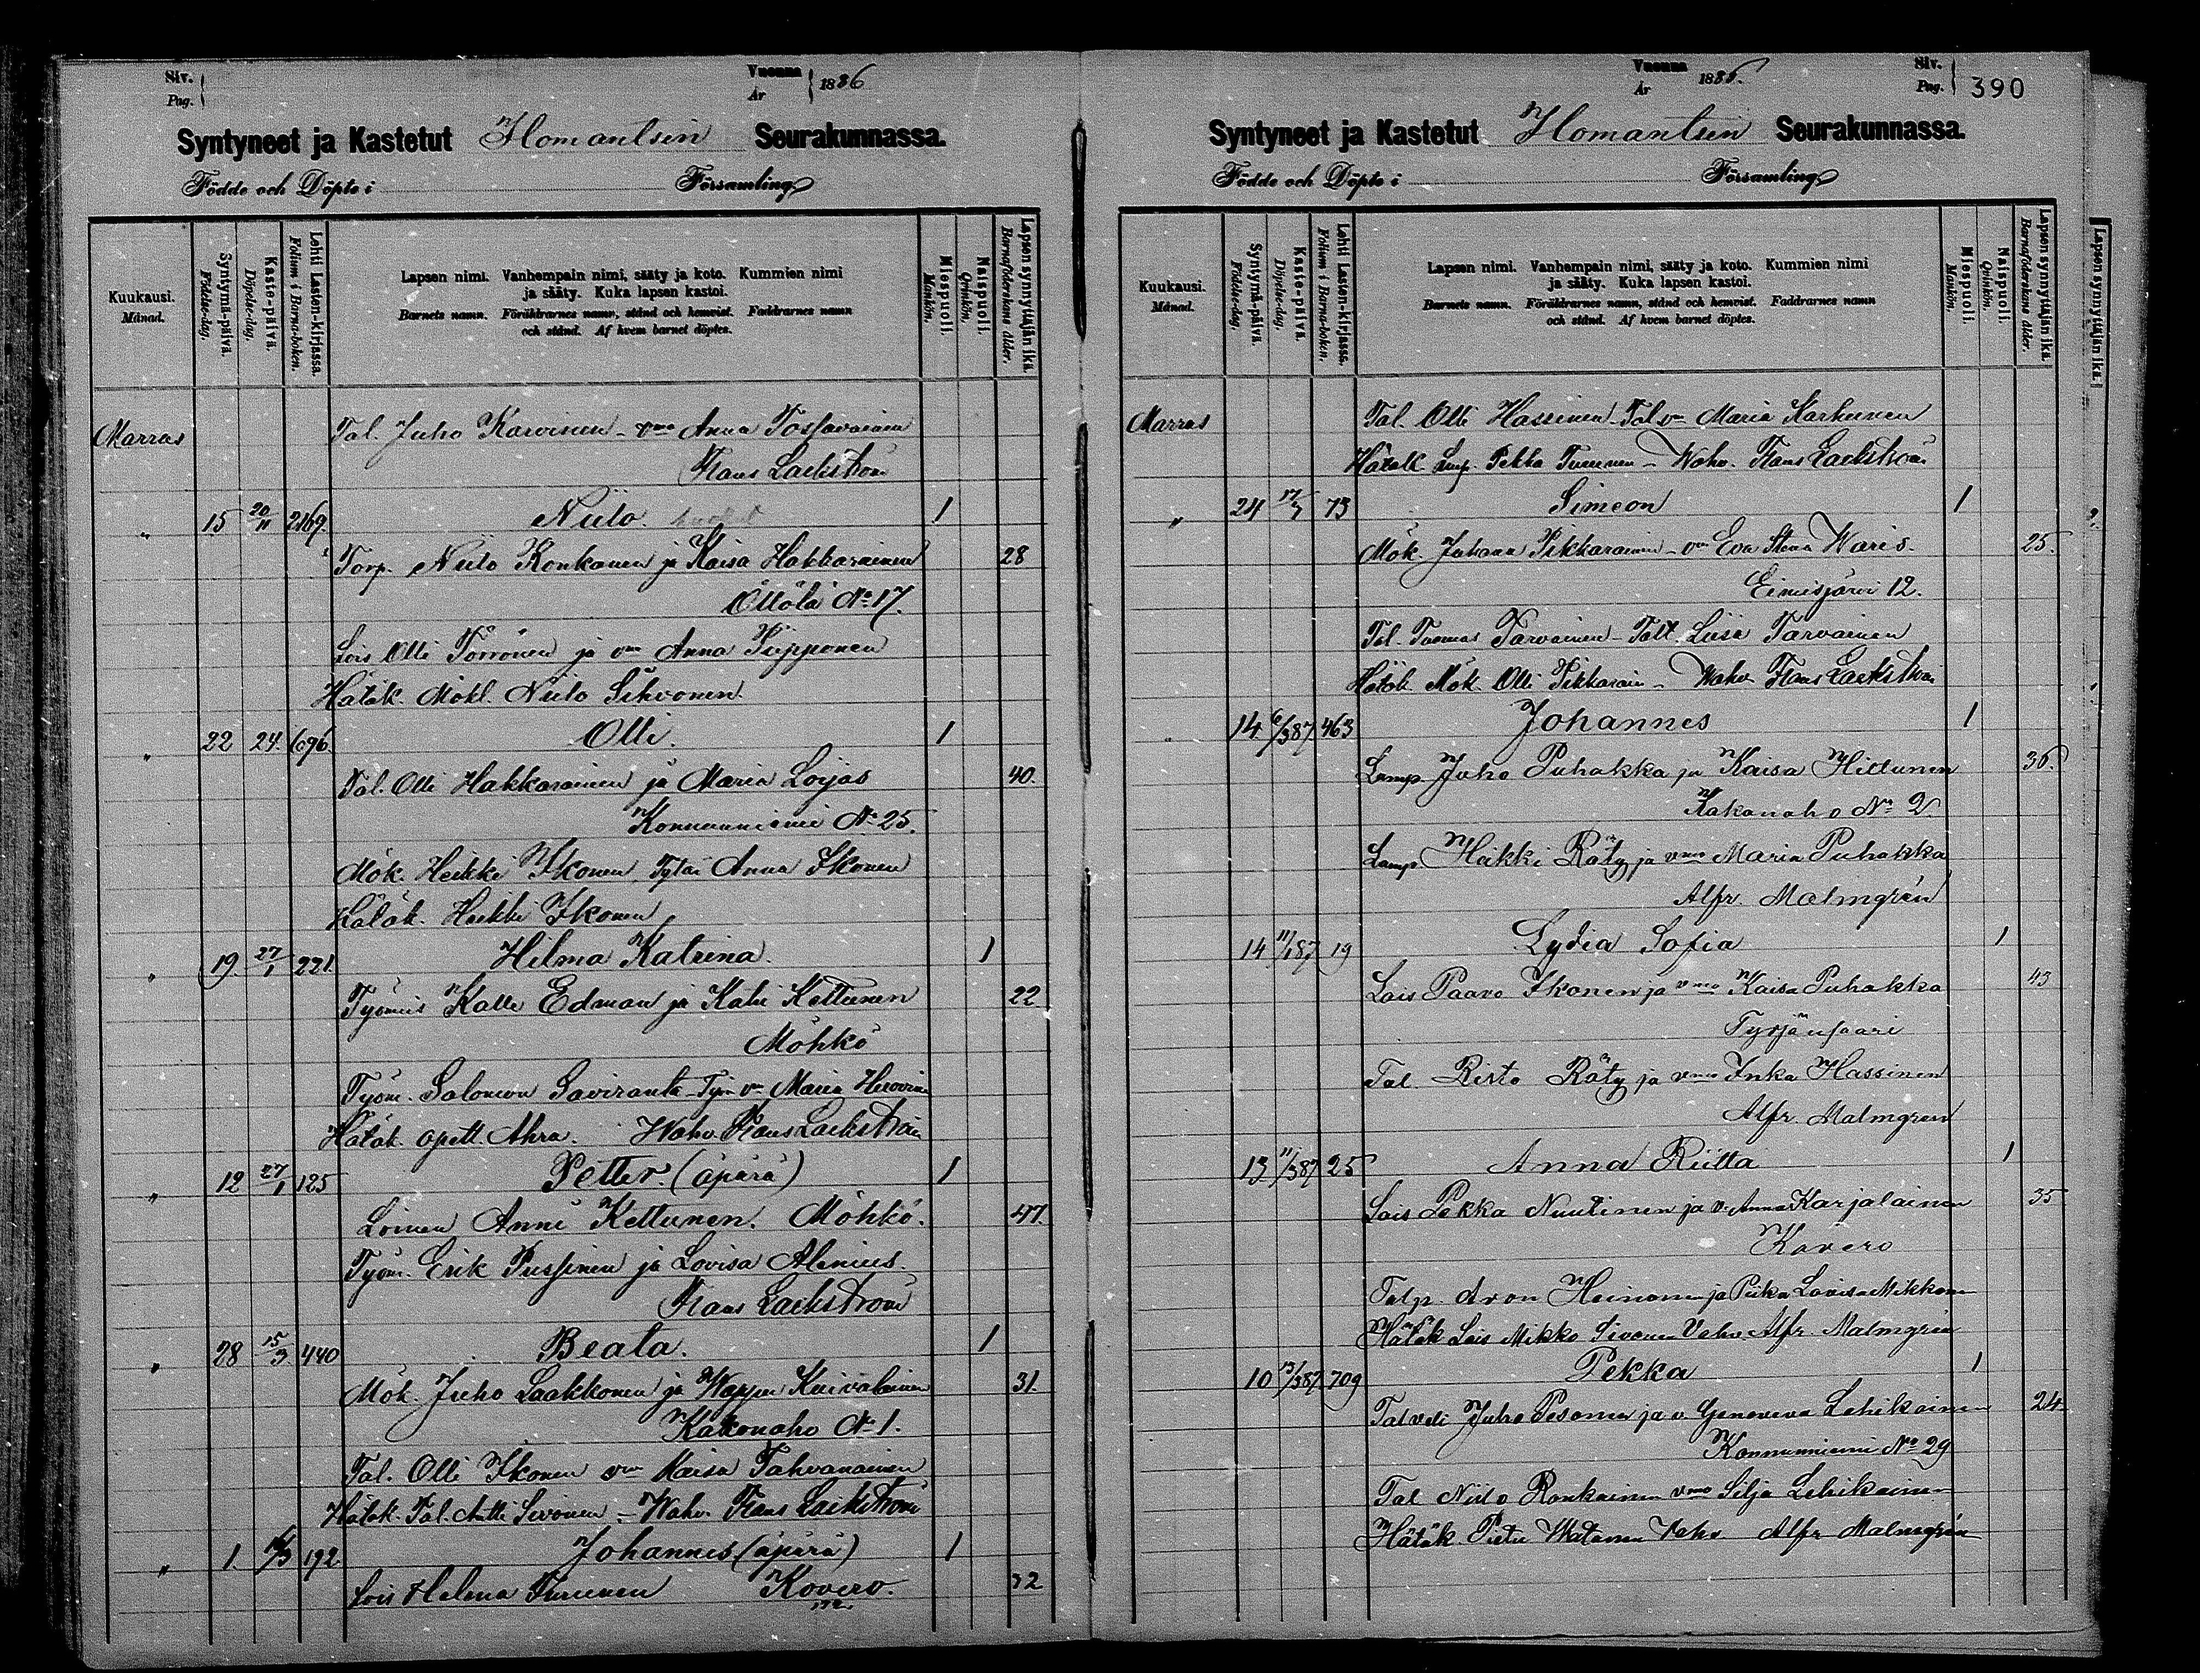 Siv.
Pag.
Vuonna
År
1886
Syntyneet ja Kastetut Ilomantsin Seurakunnassa.
Födde och Döpte i Församling
Kuukausi.
Månad.
Syntymä-päivä.
Födelse-dag.
Kaste-päivä.
Döpelse-dag.
Lehti Lasten-kirjassa.
Folium i Barna-boken.
Lapsen nimi. Vanhempain nimi, sääty ja koto. Kummien nimi
ja sääty. Kuka lapsen kastoi.
Barnets namn. Föräldrarnes namn, stånd och hemvist. Faddrarnes namn
och stånd. Af hvem barnet döptes.
Miespuoli.
Mankön.
Naispuoli.
Qvinkön.
Lapsen synnyttäjän ikä.
Barnaföderskans ålder.
Marras Tal. Juho Karvinen - vmo Anna Tossavainen
Frans Laekström
" 15 20/11 2169. Niilo. 1
Torp. Niilo Konkonen ja Kaisa Hakkarainen 28
Öllölä No 17.
Lois Olli Törrönen ja vm Anna Piipponen
Hätäk. Mökl. Niilo Sihvonen.
" 22 24. 696. Olli. 1
Tal. Olli Hakkarainen ja Maria Loijas 40.
Konnunniemi No 25.
Mök. Heikki Ikonen, Tytär Anna Ikonen
Hätäk. Heikki Ikonen
" 19 27/1 221. Hilma Katrina. 1
Työmies Kalle Edman ja Katri Kettunen 22
Möhkö
Työm. Salomon Saviranta - Työm v Maria Hirvonen
Hätäk. opett. Ahra. Wahv. Frans Laekström
" 12 27/1 125 Petter. (äpärä) 1
Loinen Anni Kettunen. Möhkö. 47.
Työm. Erik Pussinen ja Lovisa Alenius.
Frans Laekström
" 28 15/3 440 Beata. 1
Mök. Juho Laakkonen ja Wappu Kuivalainen 31.
Kakonaho No 1.
Tal. Olli Ikonen vm Kaisa Tahvanainen
Hätäk. Tal. Antti Sivonen - Wahv. Frans Laekström
" 1. 192 Johannes (äpärä) 1
Lois Helena Turunen Kovero. 32
Vuonna
År
1886.
Siv.
Pag.
390
Syntyneet ja Kastetut Ilomantsin Seurakunnassa.
Födde och Döpte i Församling
Kuukausi.
Månad.
Syntymä-päivä.
Födelse-dag.
Kaste-päivä.
Döpelse-dag.
Lehti Lasten-kirjassa.
Folium i Barna-boken.
Lapsen nimi. Vanhempain nimi, sääty ja koto. Kummien nimi
ja sääty. Kuka lapsen kastoi.
Barnets namn. Föräldrarnes namn, stånd och hemvist. Faddrarnes namn
och stånd. Af hvem barnet döptes.
Miespuoli.
Mankön.
Naispuoli.
Qvinkön.
Lapsen synnyttäjän ikä.
Barnaföderskans ålder.
Lapsen synnyttäjän ikä.
Marras Tal. Olli Hassinen - Tal v Maria Karhunen
Hätäk Lmp. Pekka Turunen - Wahv. Frans Laekström
" 24 73 Simeon 1
Mök. Juhana Pikkarainen - vm Eva Stina Waris. 25.
Eimisjärvi 12.
Tal. Tuomas Tarvainen - Talt. Liisa Tarvainen
Hätäk Mök. Olli Pikkarain - Wahv. Frans Laekström
" 14 6/3 87 463 Johannes 1
Lamp. Juho Puhakka ja Kaisa Hiltunen 36.
Kakonaho No 2.
Lamp Heikki Räty ja vmo Maria Puhakka
Alfr. Malmgrén
14 87 19 Lydia Sofia 1
Lois Paavo Ikonen ja vmo Kaisa Puhakka 43
Tyrjänsaari
Tal. Risto Räty ja vmo Inka Hassinen
Alfr. Malmgren
13 11/3 87 25 Anna Riitta 1
Lois Pekka Nuutinen ja v. Anna Karjalainen 35
Kovero
Talp. Aron Heinonen ja Piika Lovisa Mikkonen
Hätäk Lois Mikko Sivonen Vahv. Alfr. Malmgrén
10 13/3 87. 709 Pekka 1
Tal veli Juho Pesonen ja v. Genoveva Lehikoinen 24.
Konnunniemi No 29
Tal Niilo Ronkainen vmo Silja Lehikoinen
Hätäk. Pietu Watanen Vahv Alfr Malmgrén